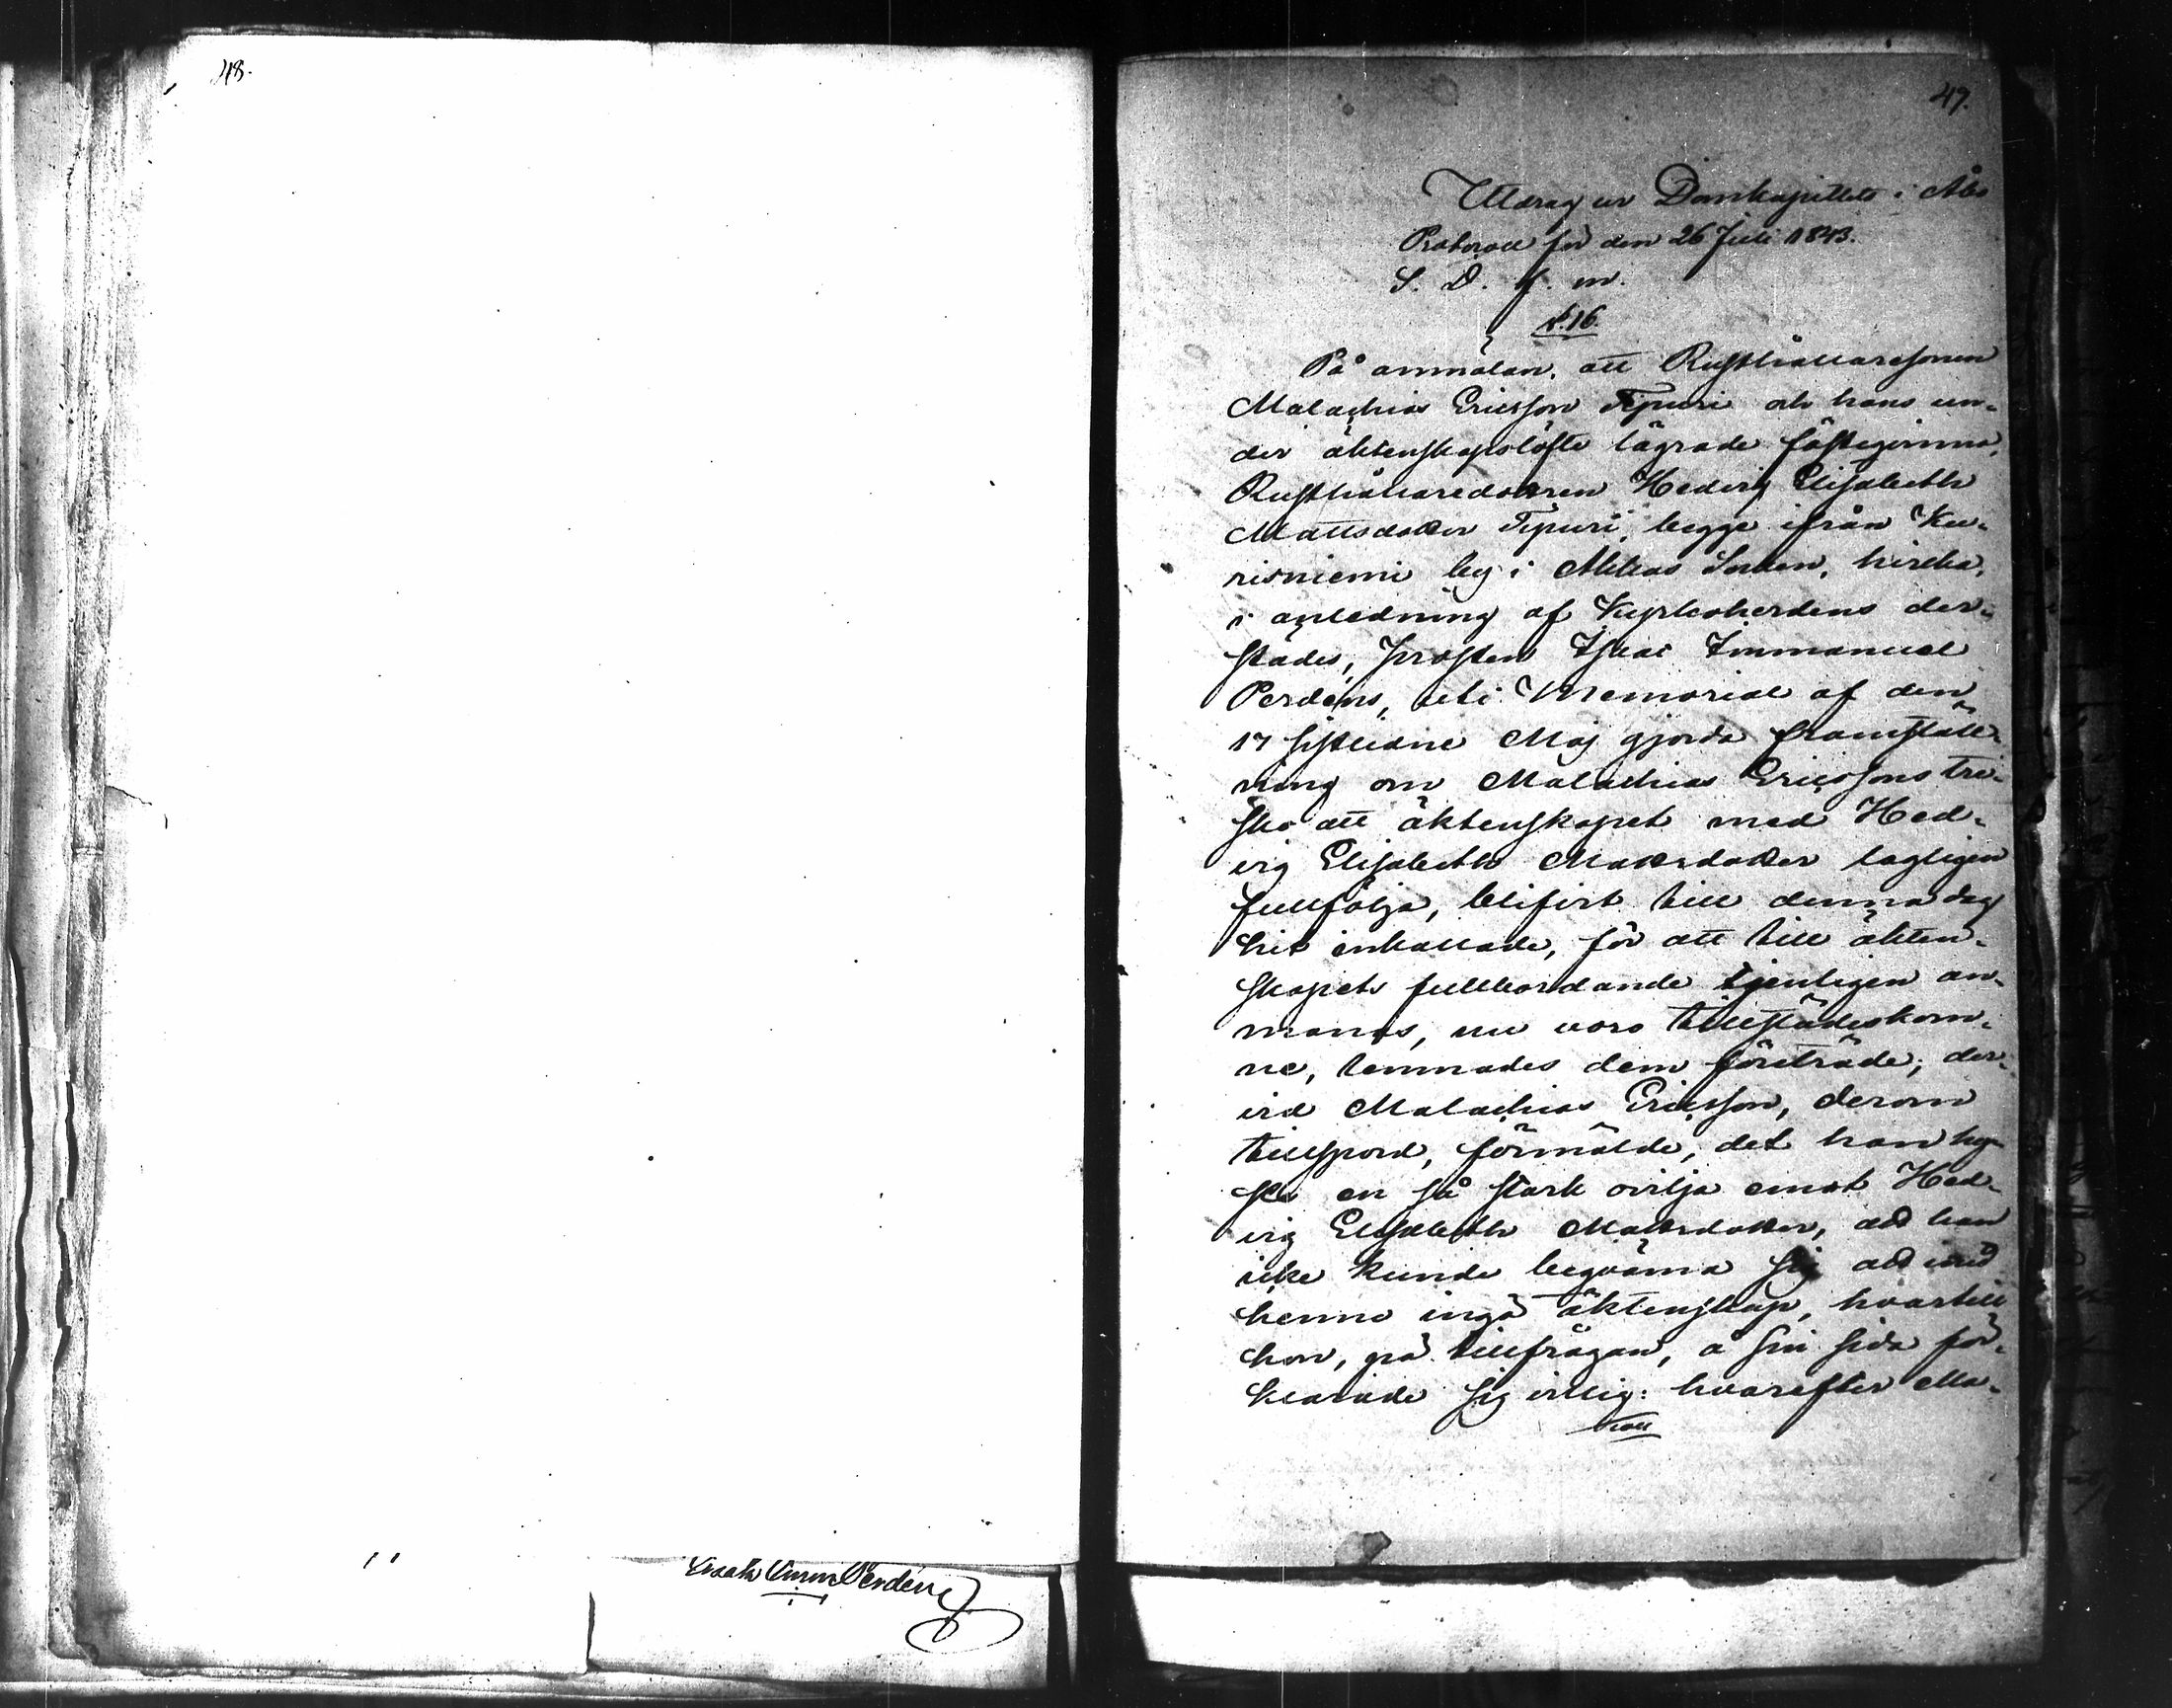 48.
Isaak Imm Perdén
49.
Utdrag ur Domkapitlets i Åbo
Protocoll för den 26 Juli 1843.
S. D. f. m.
§.16.
På anmälan, att Rusthållaresonen
Malachias Ericsson Tipuri och hans un-
der äktenskapslöfte lägrade fästeqvinna,
Rusthållaredottren Hedvig Elisabeth
Mattsdotter Tipuri, begge ifrån Ku-
risniemi by i Akkas Socken, hvilka,
i anledning af Kyrkoherdens der-
städes, Prosten Isaac Immanuel
Perdéns, uti Memorial af den
17 sistledne Maj gjorda framställ-
ning om Malachias Ericssons tre-
sko att äktenskapet med Hed-
vig Elisabeth Mattsdotter lagligen
fullfölja, blifvit till denna dag
hit inkallade, för att till äkten-
skapets fullbordande tjenligen an-
manas, nu voro tillstädeskom-
ne, lemnades dem företräde; der-
vid Malachias Ericsson, derom
tillspord, förmälde, det han hy-
ste en så stark ovilja emot Hed-
vig Elisabeth Mattsdotter, att han
icke kunde beqväma sig att med
henne ingå äktenskap, hvartill
hon, på tillfrågan, å sin sida för-
klarade sig villig: hvarefter Ma-